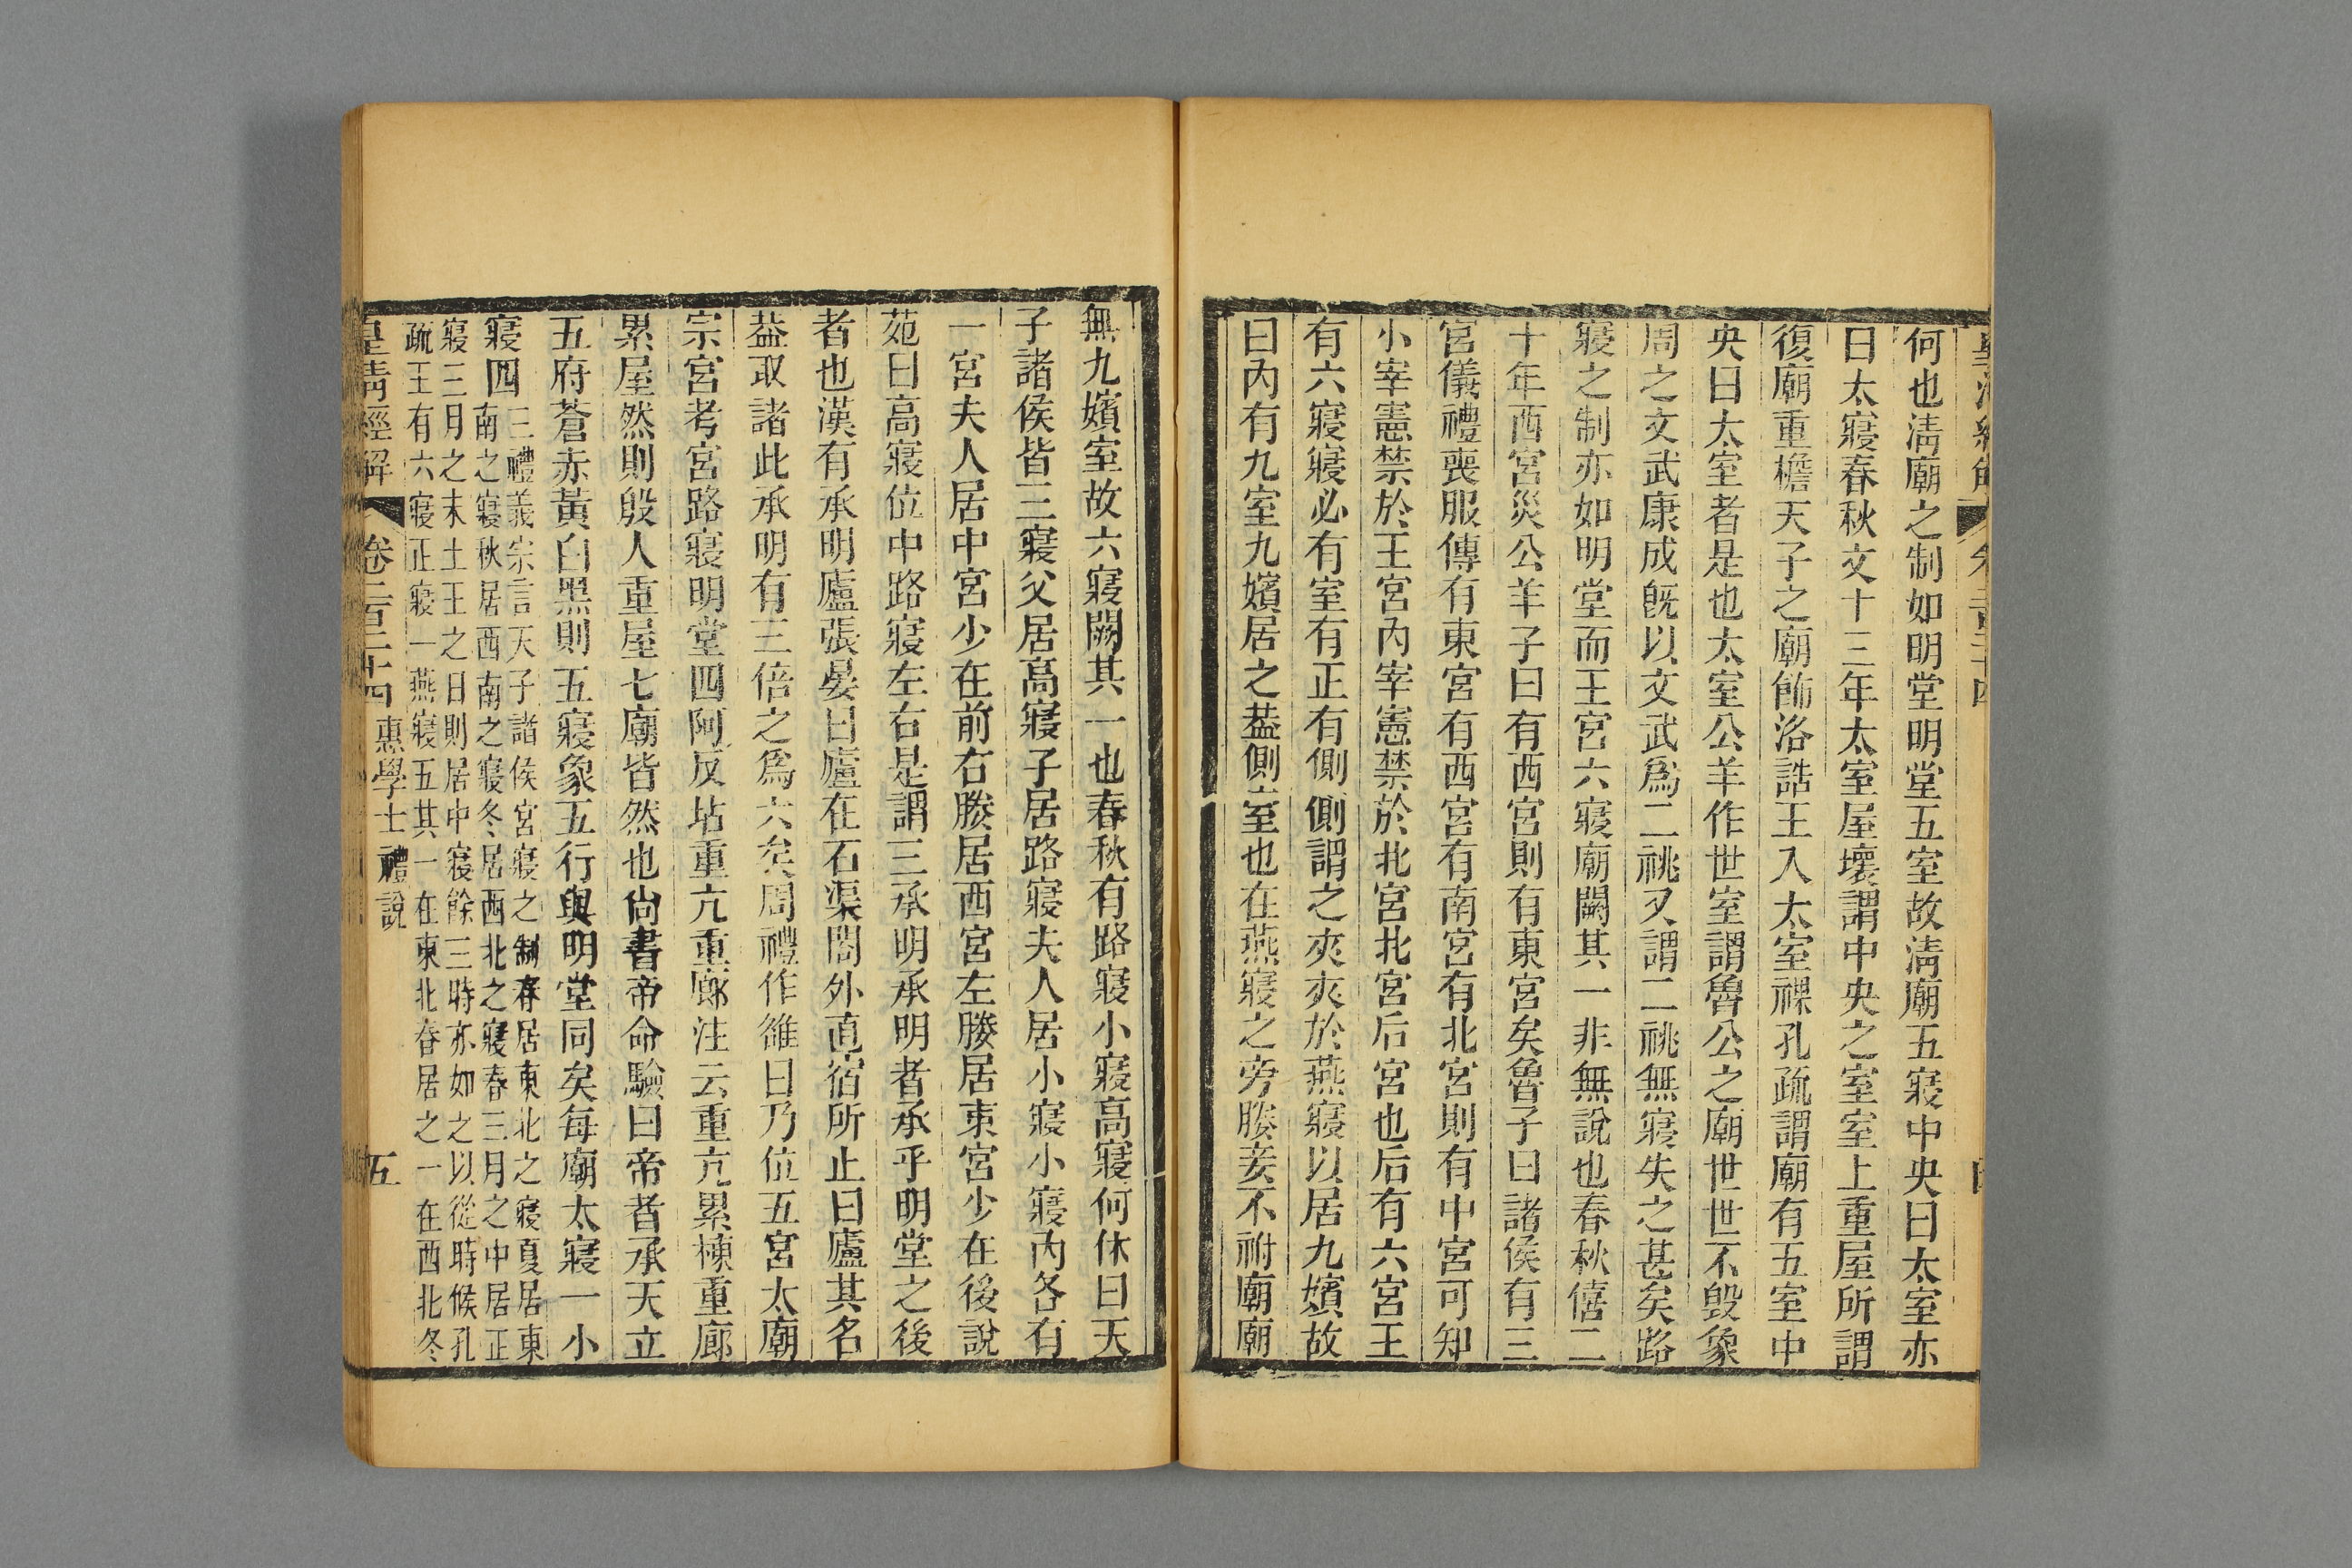 何也淸廟之制如明堂明堂五室故淸廟五寢中央曰太室亦
曰太寢春秋文十三年太室屋壞謂中央之室室上重屋所謂
復廟重檐天子之廟飾洛誥王入太室祼孔疏謂廟有五室中
央曰太室者是也太室公羊作世室謂魯公之廟世世不毀象
周之文武康成旣以文武爲二祧又謂二祧無寢失之甚矣路
寢之制亦如明堂而王宮六寢廟闕其一非無說也春秋僖二
十年西宮災公羊子曰有西宮則有東宮矣魯子曰諸侯有三
宮儀禮喪服傳有東宮有西宮有南宮有北宮則有中宮可知
小宰憲禁於王宮內宰憲禁於北宮北宮后宮也后有六宮王
有六寢寢必有室有正有側側謂之夾夾於燕寢以居九嬪故
曰內有九室九嬪居之葢側室也在燕寢之旁媵妾不祔廟廟
無九嬪室故六寢闕其一也春秋有路寢小寢高寢何休曰天
子諸侯皆三寢父居高寢子居路寢夫人居小寢小寢內各有
一宮夫人居中宮少在前右媵居西宮左媵居東宮少在後說
苑曰高寢位中路寢左右是謂三承明承明者承乎明堂之後
者也漢有承明廬張晏曰廬在石渠閣外直宿所止曰廬其名
葢取諸此承明有三倍之爲六矣周禮作雒曰乃位五宮太廟
宗宮考宮路寢明堂四阿反坫重亢重廊注云重亢累棟重廊
累屋然則殷人重屋七廟皆然也尙書帝命驗曰帝者承天立
五府蒼赤黃白黑則五寢象五行與明堂同矣每廟太寢一小
寢四
三禮義宗言天子諸侯宮寢之制春居東北之寢夏居東
南之寢秋居西南之寢冬居西北之寢春三月之中居正
寢三月之末土王之日則居中寢餘三時亦如之以從時候孔
疏王有六寢正寢一燕寢五其一在東北春居之一在西北冬
皇淸經解
卷二百二十四
惠學士禮說
五